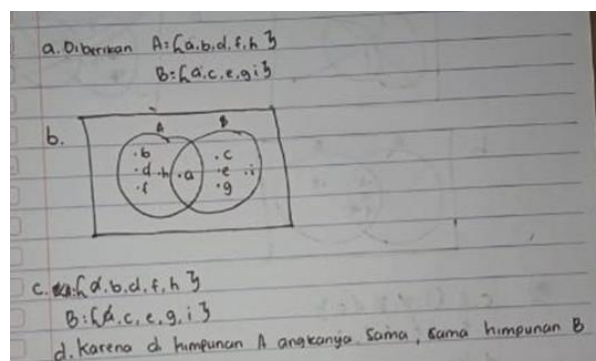 a. Diberikan A = {a, b, d, f, h }
B = {a, c, e, g i }
b.
A B
. b . c
. d . h . a . e . i
. f . g
c. {a, b, d, f, h }
B = {a, c, e, g, i }
d. Karena di himpunan A angkanya sama, sama himpunan B